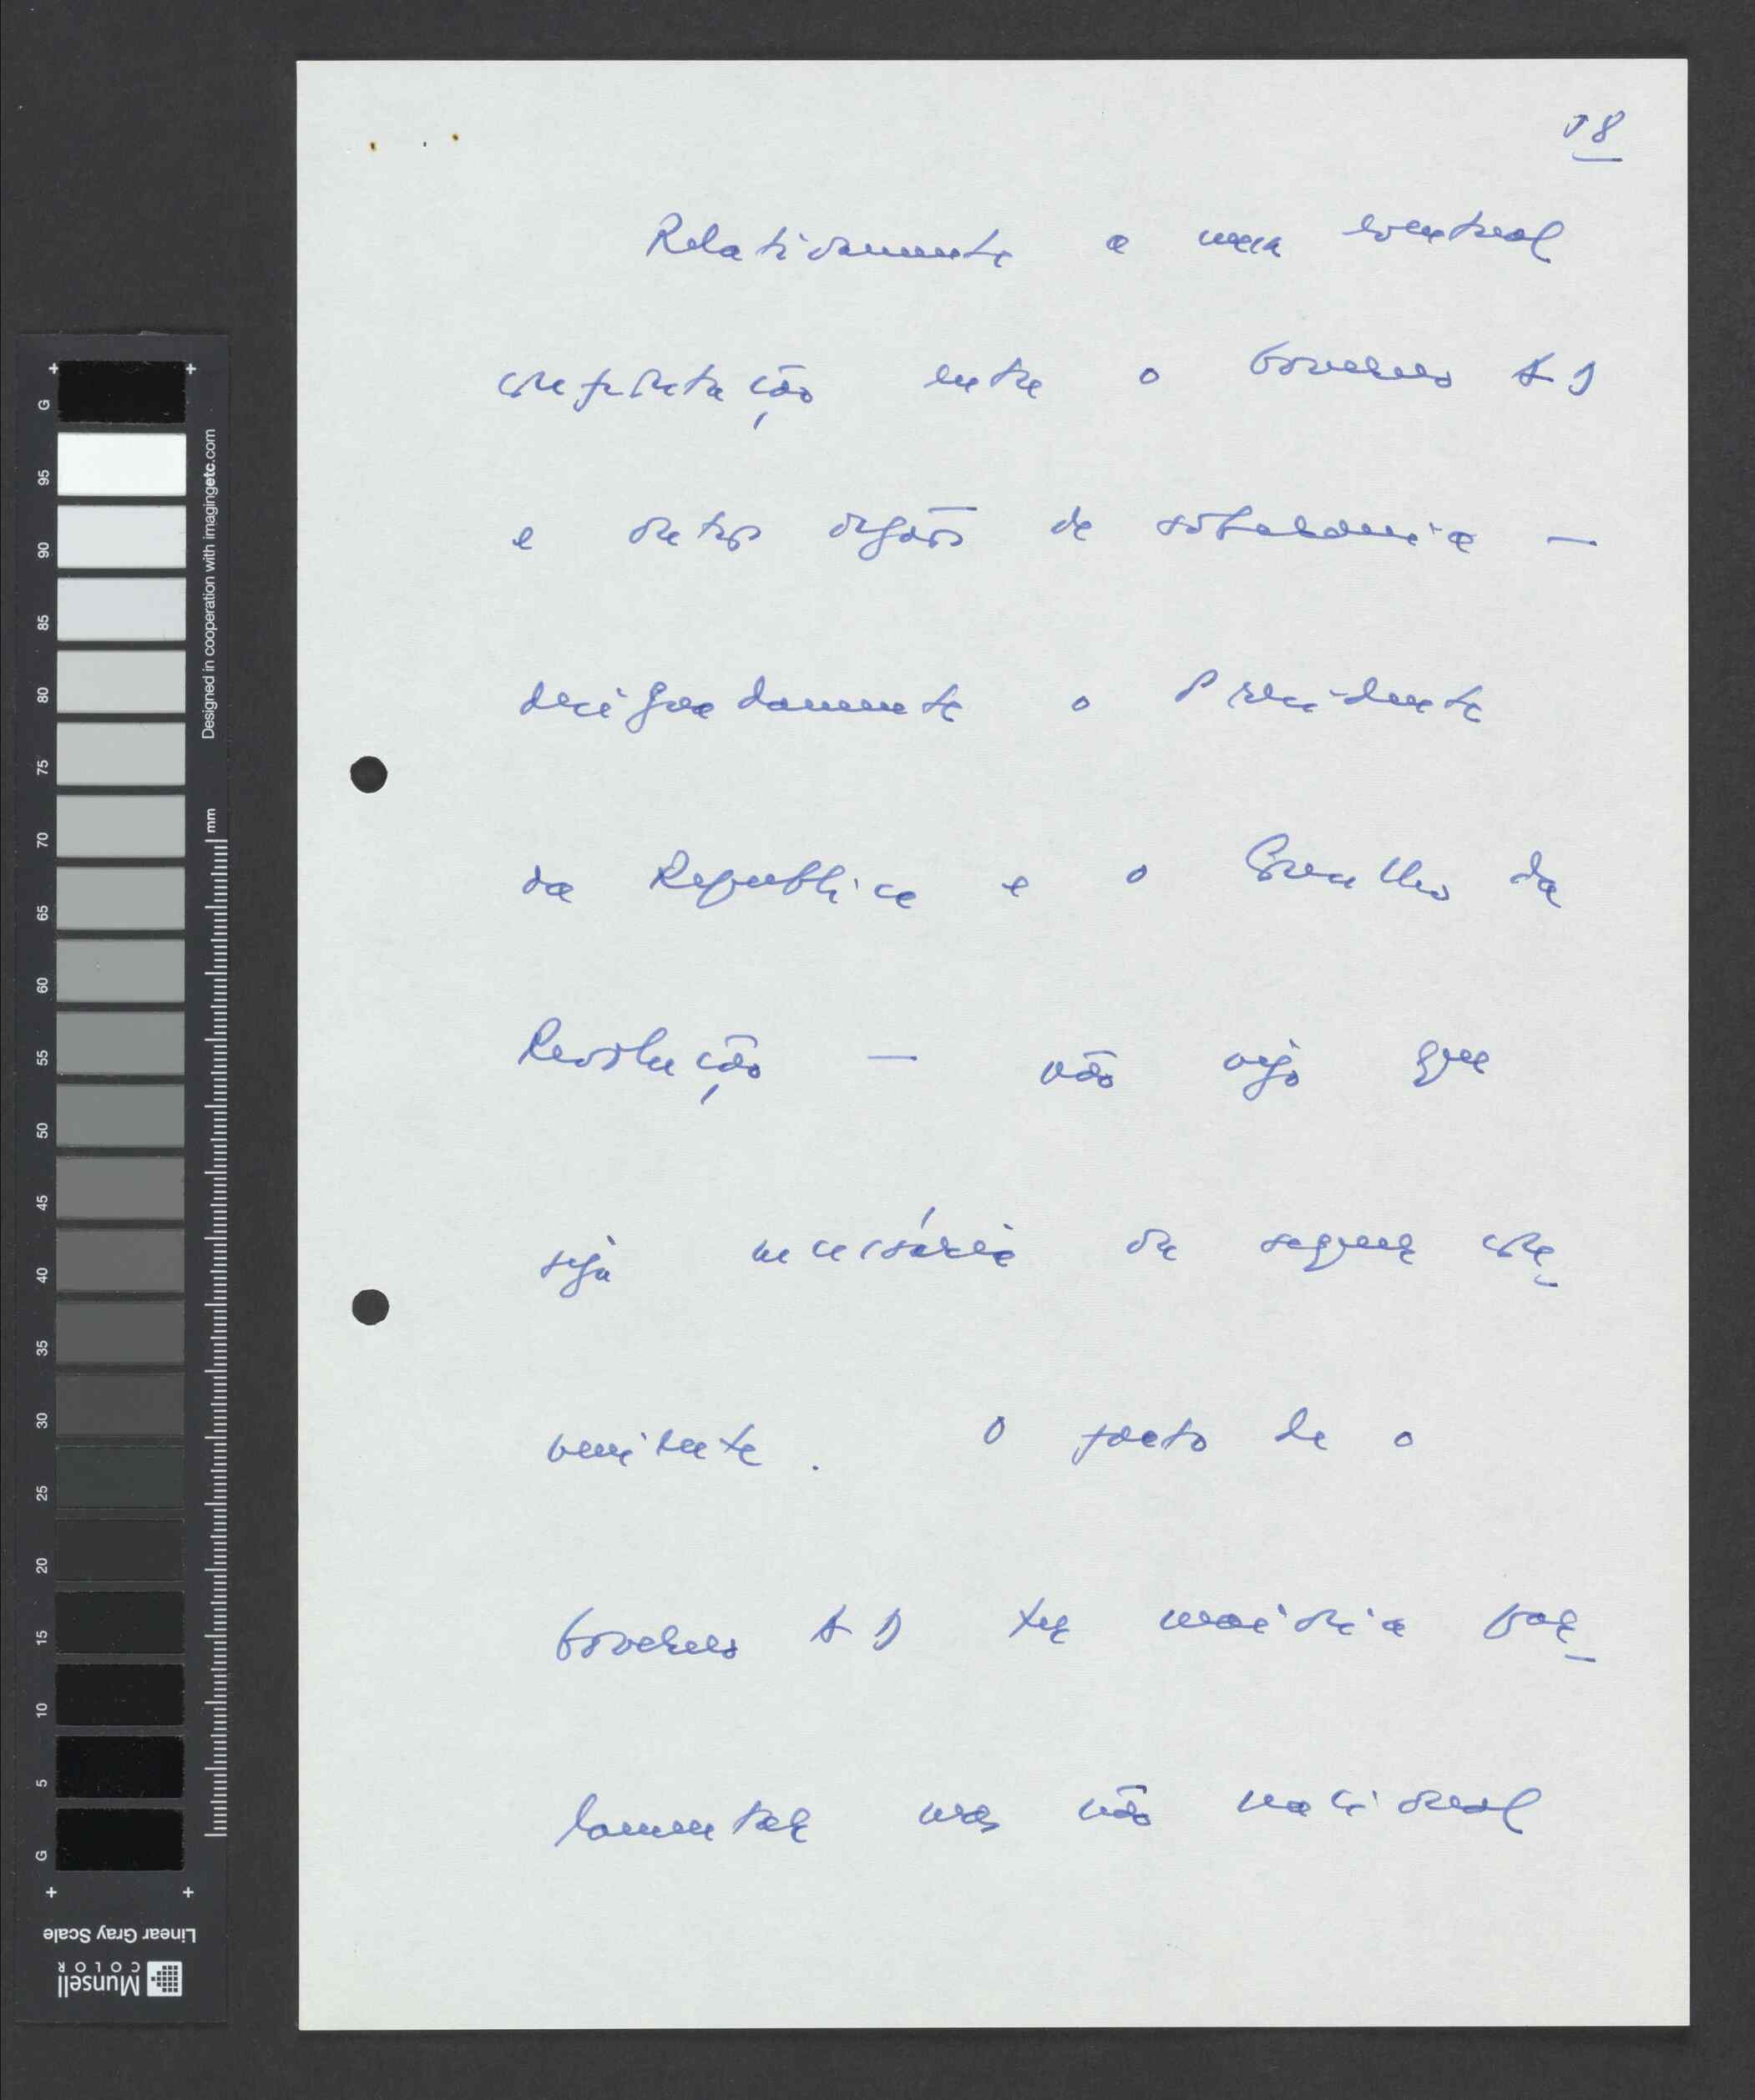 18
Relativamente a uma eventual
confrontação entre o Governo AD
e outros orgãos de soberania —
designadamente o Presidente
da Republica e o Conselho da
Revolução — não vejo que
seja necessária ou sequer con_
veniente. O facto de o
Governo AD ter maioria par_
lamentar mas não nacional
G 95 90 85 80 75 70 65 60 55 50 45 40 35 30 25 20 15 10 5 G
Designed in cooperation with imagingetc.com
mm
Linear Gray Scale
Munsell
COLOR